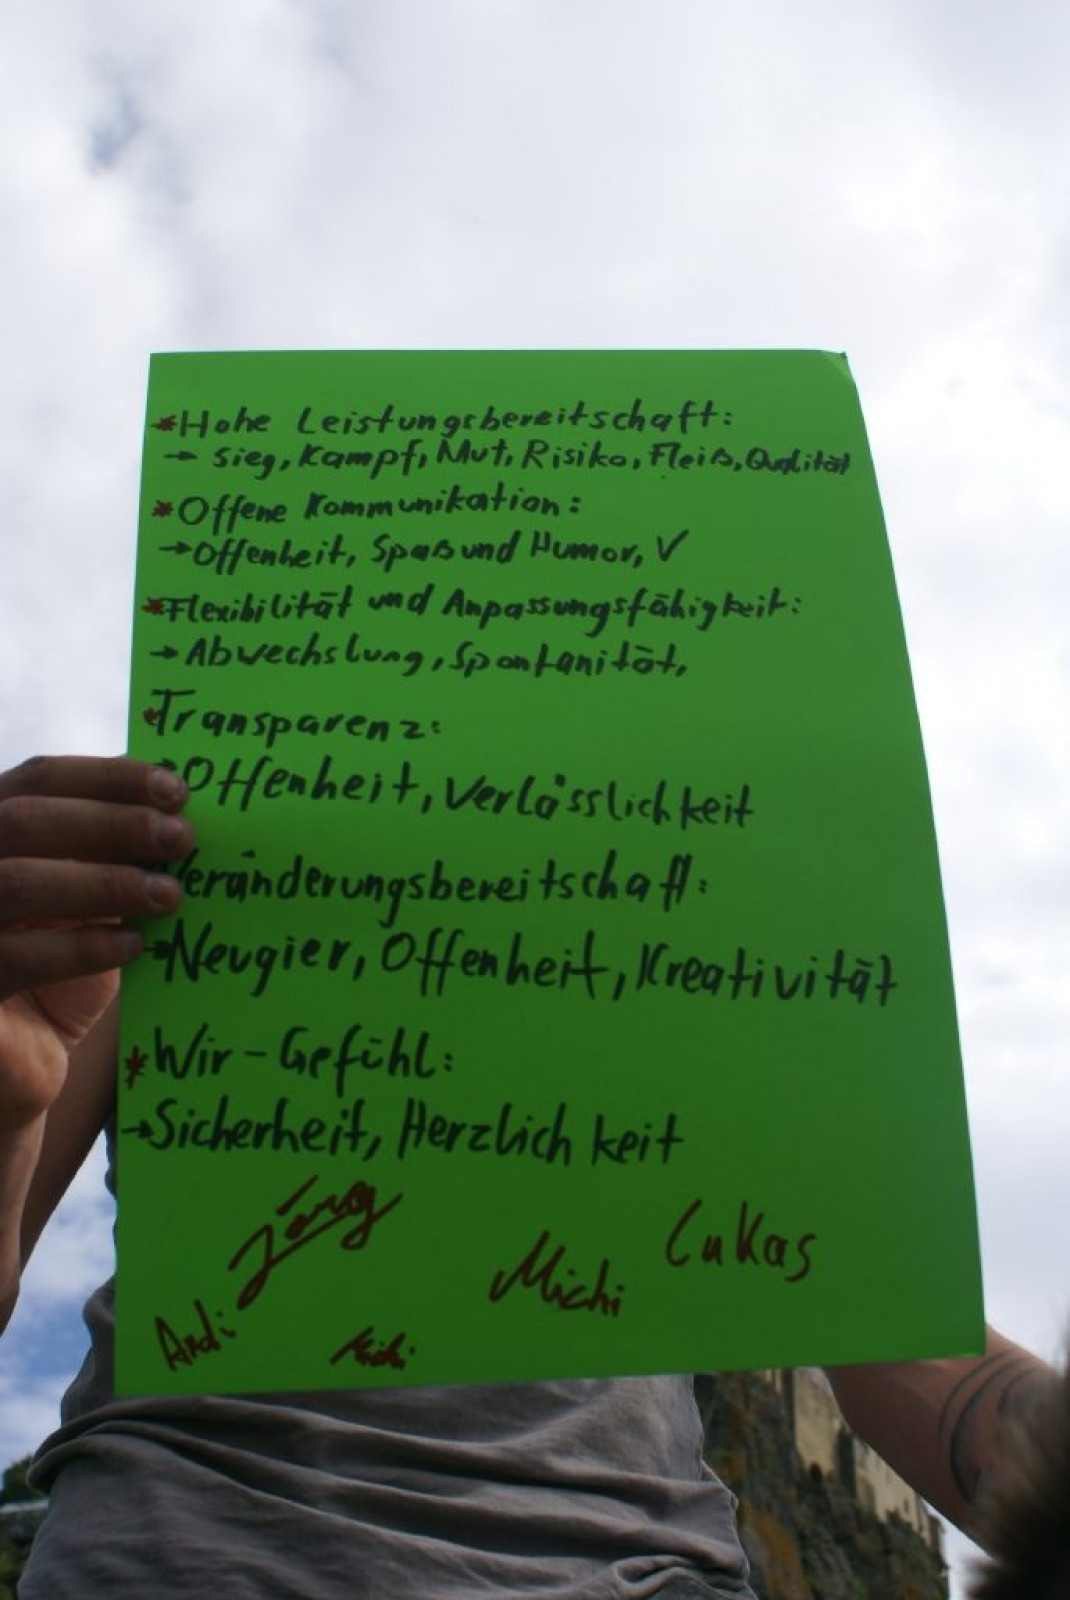 * Hohe Leistungsbereitschaft:
→ Sieg, Kampf, Mut, Risiko, Fleiß, Qualität
* Offene Kommunikation:
→ Offenheit, Spaß und Humor, V
* Flexibilität und Anpassungsfähigkeit:
→ Abwechslung, Spontanität,
* Transparenz:
→ Offenheit, Verlässlichkeit
Veränderungsbereitschaft:
→ Neugier, Offenheit, Kreativität
* Wir-Gefühl:
→ Sicherheit, Herzlichkeit
Jörg
Lukas
Michi
Andi